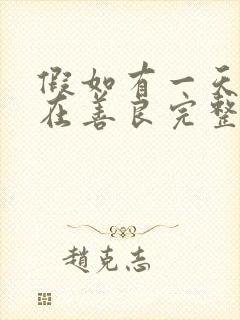 假如有一天
在善良完整
趙克志